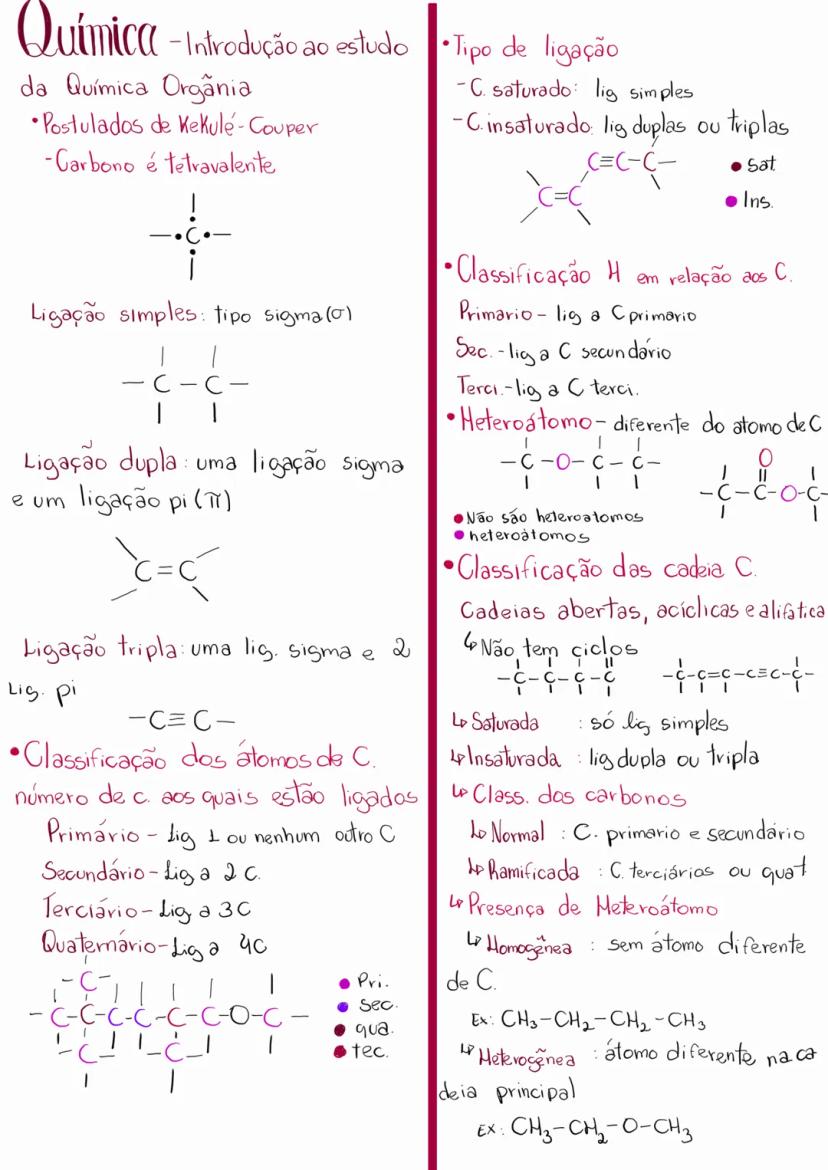 Química - Introdução ao estudo
da Química Orgânia
• Postulados de Kekulé-Couper
- Carbono é tetravalente
C
Ligação simples: tipo sigma (σ)
- C - C -
Ligação dupla: uma ligação sigma
e um ligação pi (π)
C=C
Ligação tripla: uma lig. sigma e 2
Lig. pi
-C≡C-
• Classificação dos átomos de C.
número de c. aos quais estão ligados
Primário - Lig 1 ou nenhum outro C
Secundário - Lig a 2 C.
Terciário - Lig a 3C
Quaternário - Lig a 4C
-C-
-C-C-C-C-C-C-O-C-
-C- -C-
• Pri.
• Sec.
• qua.
• tec.
• Tipo de ligação
- C. saturado: lig simples
- C. insaturado: lig duplas ou triplas
C≡C-C-
C=C
• Sat
• Ins.
• Classificação H em relação aos C.
Primario - lig a C primario
Sec. - lig a C secundário
Terci. - lig a C terci.
• Heteroátomo - diferente do atomo de C
-C-O-C-C-
O
-C-C-O-C-
• Não são heteroatomos
• heteroátomos
• Classificação das cadeia C.
Cadeias abertas, acíclicas e alifática
↳ Não tem ciclos
-C-C-C-C -C-C=C-C≡C-C-
↳ Saturada : só lig simples
↳ Insaturada : lig dupla ou tripla
↳ Class. dos carbonos
↳ Normal : C. primario e secundário
↳ Ramificada : C. terciários ou quat
↳ Presença de Heteroátomo
↳ Homogênea : sem átomo diferente
de C.
Ex: CH₃-CH₂-CH₂-CH₃
↳ Heterogênea : átomo diferente na ca
deia principal
Ex: CH₃-CH₂-O-CH₃